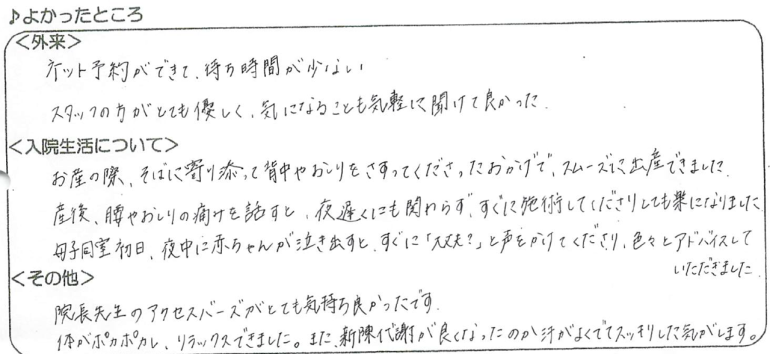 ♪よかったところ
<外来>
ネット予約ができて、待ち時間が少ない
スタッフの方がとても優しく、気になることも気軽に聞けて良かった.
<入院生活について>
お産の際、そばに寄り添って背中やおしりをさすってくださったおかげで、スムーズに出産できました.
産後、腰やおしりの痛みを話すと、夜遅くにも関わらず、すぐに施術してくださりとても楽になりました
母子同室初日、夜中に赤ちゃんが泣き出すと、すぐに「大丈夫？」と声をかけてくださり、色々とアドバイスして
いただきました.
<その他>
院長先生のアクセスバーズがとても気持ち良かったです.
体がポカポカし、リラックスできました。また、新陳代謝が良くなったのか汗がよくでてスッキリした気がします。